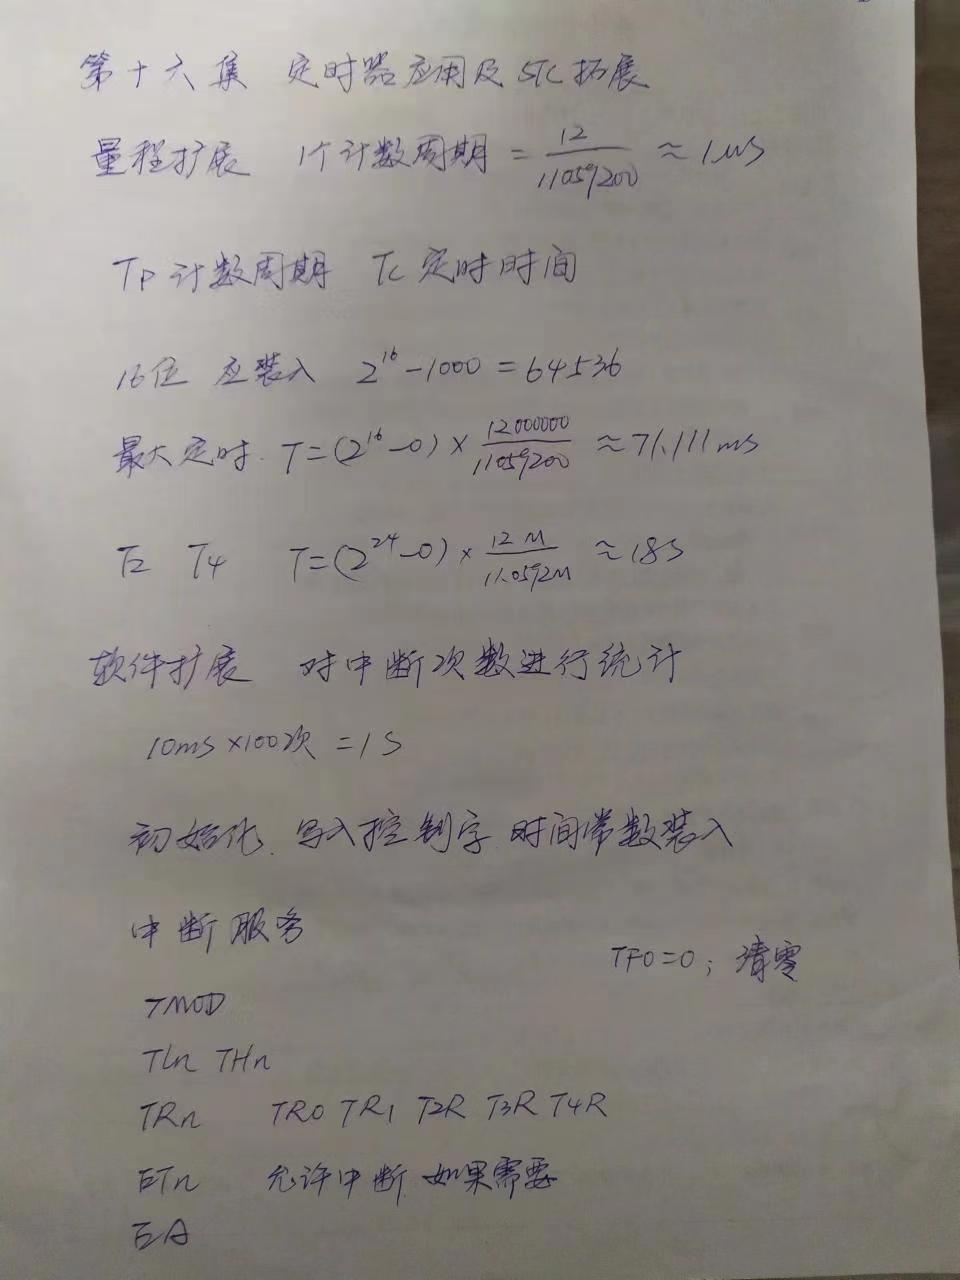 第十六集 定时器应用及STC拓展
量程扩展 1个计数周期 = 12/11059200 ≈ 1μs
Tp 计数周期 Tc 定时时间
16位 应装入 2^16-1000 = 64536
最大定时. T=(2^16-0) × 12000000/11059200 ≈ 71.111ms
T2 T4 T=(2^24-0) × 12M/11.0592M ≈ 18s
软件扩展 对中断次数进行统计
10ms ×100次 = 1s
初始化. 写入控制字. 时间常数装入
中断服务
TF0=0; 清零
TMOD
TLn THn
TRn TR0 TR1 T2R T3R T4R
ETn 允许中断. 如果需要
EA